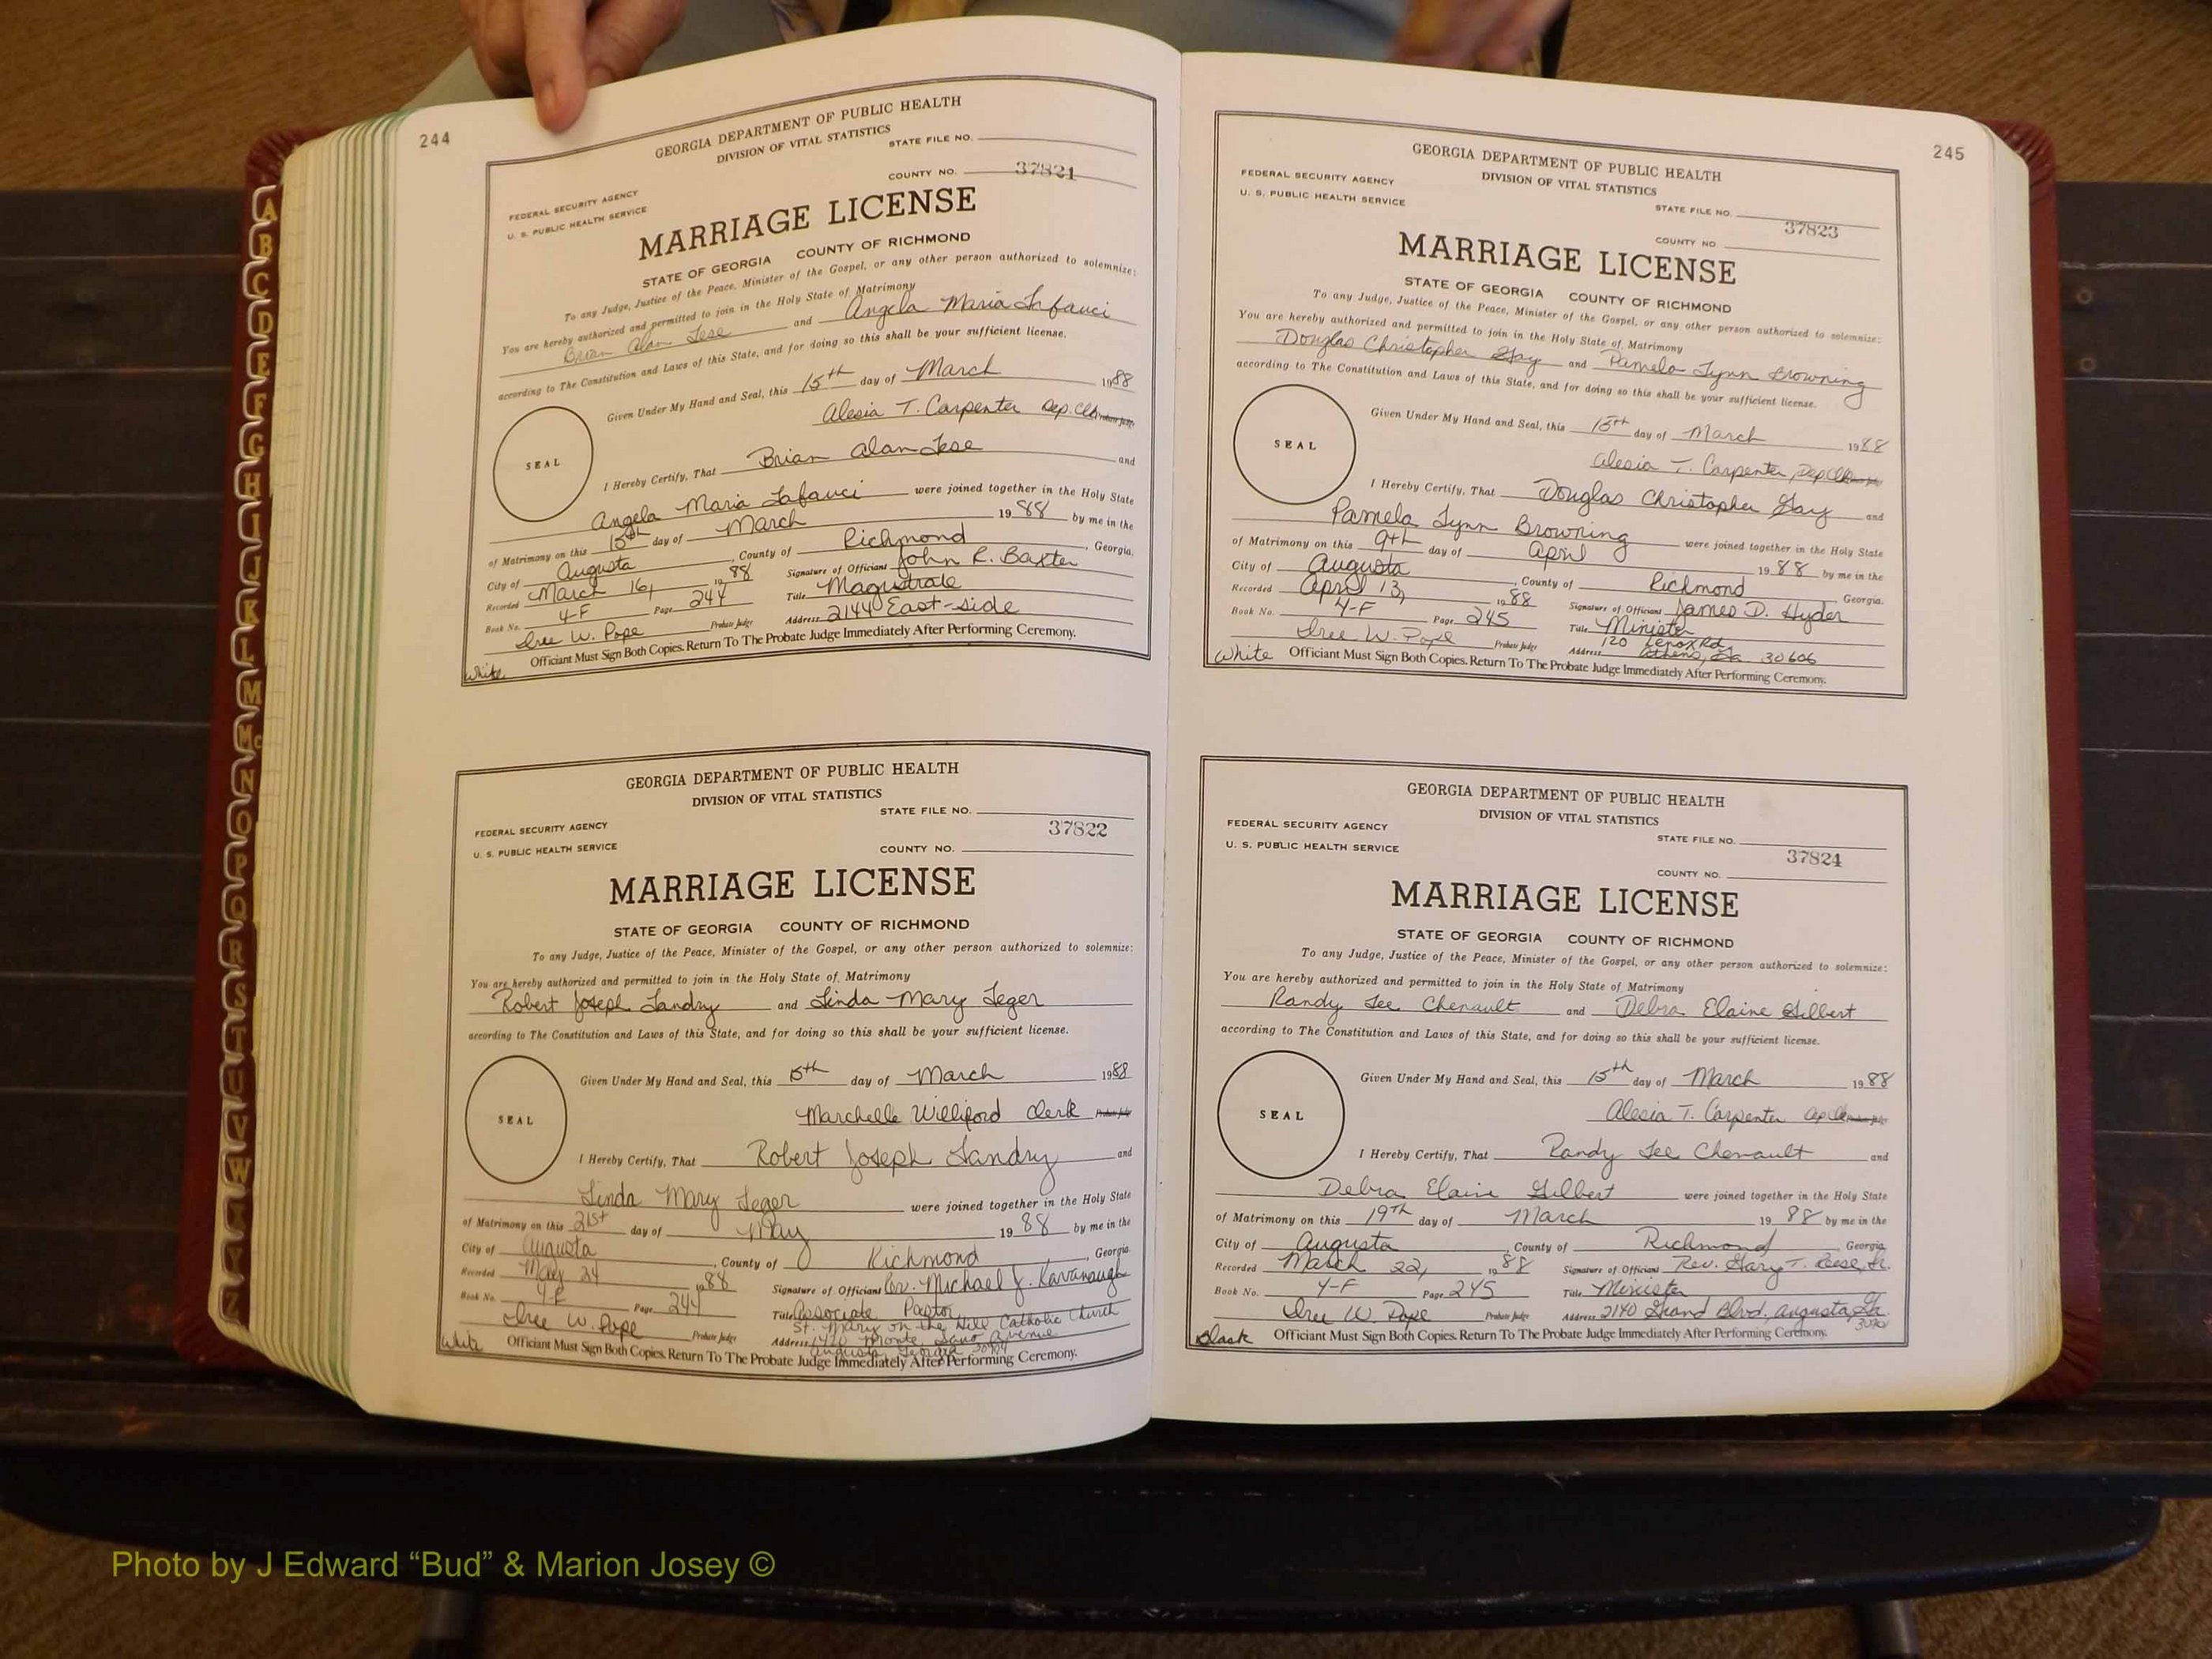 244
GEORGIA DEPARTMENT OF PUBLIC HEALTH
DIVISION OF VITAL STATISTICS
STATE FILE NO.
COUNTY NO. 37821
FEDERAL SECURITY AGENCY
U. S. PUBLIC HEALTH SERVICE
MARRIAGE LICENSE
STATE OF GEORGIA COUNTY OF RICHMOND
To any Judge, Justice of the Peace, Minister of the Gospel, or any other person authorized to solemnize:
You are hereby authorized and permitted to join in the Holy State of Matrimony
Brian Alan and Angela Maria Lafauci
according to The Constitution and Laws of this State, and for doing so this shall be your sufficient license.
Given Under My Hand and Seal, this 15th day of March 1988
Alesia T. Carpenter Dep. Clk
SEAL
I Hereby Certify, That Brian Alan and
Angela Maria Lafauci were joined together in the Holy State
of Matrimony on this 15th day of March 1988 by me in the
City of Augusta, County of Richmond, Georgia.
Recorded March 16, 1988 Signature of Officiant John R. Baxter
Book No. 4-F Page 244 Title Magistrate
Iree W. Pope Probate Judge Address 2144 East-side
White Officiant Must Sign Both Copies. Return To The Probate Judge Immediately After Performing Ceremony.
GEORGIA DEPARTMENT OF PUBLIC HEALTH
DIVISION OF VITAL STATISTICS
STATE FILE NO.
37822
FEDERAL SECURITY AGENCY
U. S. PUBLIC HEALTH SERVICE COUNTY NO.
MARRIAGE LICENSE
STATE OF GEORGIA COUNTY OF RICHMOND
To any Judge, Justice of the Peace, Minister of the Gospel, or any other person authorized to solemnize:
You are hereby authorized and permitted to join in the Holy State of Matrimony
Robert Joseph Landry and Linda Mary Leger
according to The Constitution and Laws of this State, and for doing so this shall be your sufficient license.
Given Under My Hand and Seal, this 5th day of March 1988
Marchelle Williford Clerk Probate Judge
SEAL
I Hereby Certify, That Robert Joseph Landry and
Linda Mary Leger were joined together in the Holy State
of Matrimony on this 21st day of May 1988 by me in the
City of Augusta, County of Richmond, Georgia.
Recorded May 24 1988 Signature of Officiant Rev. Michael J. Kavanaugh
Book No. 4-F Page 244 Title Associate Pastor
St. Mary on the Hill Catholic Church
Iree W. Pope Probate Judge Address 1420 Monte Sano Avenue
Augusta, Georgia 30904
White Officiant Must Sign Both Copies. Return To The Probate Judge Immediately After Performing Ceremony.
245
GEORGIA DEPARTMENT OF PUBLIC HEALTH
DIVISION OF VITAL STATISTICS
FEDERAL SECURITY AGENCY
U. S. PUBLIC HEALTH SERVICE
STATE FILE NO.
37823
COUNTY NO.
MARRIAGE LICENSE
STATE OF GEORGIA COUNTY OF RICHMOND
To any Judge, Justice of the Peace, Minister of the Gospel, or any other person authorized to solemnize:
You are hereby authorized and permitted to join in the Holy State of Matrimony
Douglas Christopher Gay and Pamela Lynn Browning
according to The Constitution and Laws of this State, and for doing so this shall be your sufficient license.
Given Under My Hand and Seal, this 15th day of March 1988
Alesia T. Carpenter, Dep. Clk
SEAL
I Hereby Certify, That Douglas Christopher Gay and
Pamela Lynn Browning were joined together in the Holy State
of Matrimony on this 9th day of April 1988 by me in the
City of Augusta, County of Richmond Georgia.
Recorded April 13, 1988 Signature of Officiant James D. Hyder
Book No. 4-F Page 245 Title Minister
Iree W. Pope Probate Judge Address 120 Lenox Rd.
Athens, Ga 30606
White Officiant Must Sign Both Copies. Return To The Probate Judge Immediately After Performing Ceremony.
GEORGIA DEPARTMENT OF PUBLIC HEALTH
DIVISION OF VITAL STATISTICS
FEDERAL SECURITY AGENCY
U. S. PUBLIC HEALTH SERVICE
STATE FILE NO.
37824
COUNTY NO.
MARRIAGE LICENSE
STATE OF GEORGIA COUNTY OF RICHMOND
To any Judge, Justice of the Peace, Minister of the Gospel, or any other person authorized to solemnize:
You are hereby authorized and permitted to join in the Holy State of Matrimony
Randy Lee Chenault and Debra Elaine Gilbert
according to The Constitution and Laws of this State, and for doing so this shall be your sufficient license.
Given Under My Hand and Seal, this 15th day of March 1988
Alesia T. Carpenter
SEAL
I Hereby Certify, That Randy Lee Chenault and
Debra Elaine Gilbert were joined together in the Holy State
of Matrimony on this 19th day of March 1988 by me in the
City of Augusta, County of Richmond Georgia
Recorded March 22, 1988 Signature of Officiant Rev. Gary T. Reese, Sr.
Book No. 4-F Page 245 Title Minister
Iree W. Pope Probate Judge Address 2140 Grand Blvd., Augusta, Ga.
30901
Black Officiant Must Sign Both Copies. Return To The Probate Judge Immediately After Performing Ceremony.
A
B
C
D
E
F
G
H
I
J
K
L
M
Mc
N
O
P
Q
R
S
T
U
V
W
X
Y
Z
Photo by J Edward “Bud” & Marion Josey ©